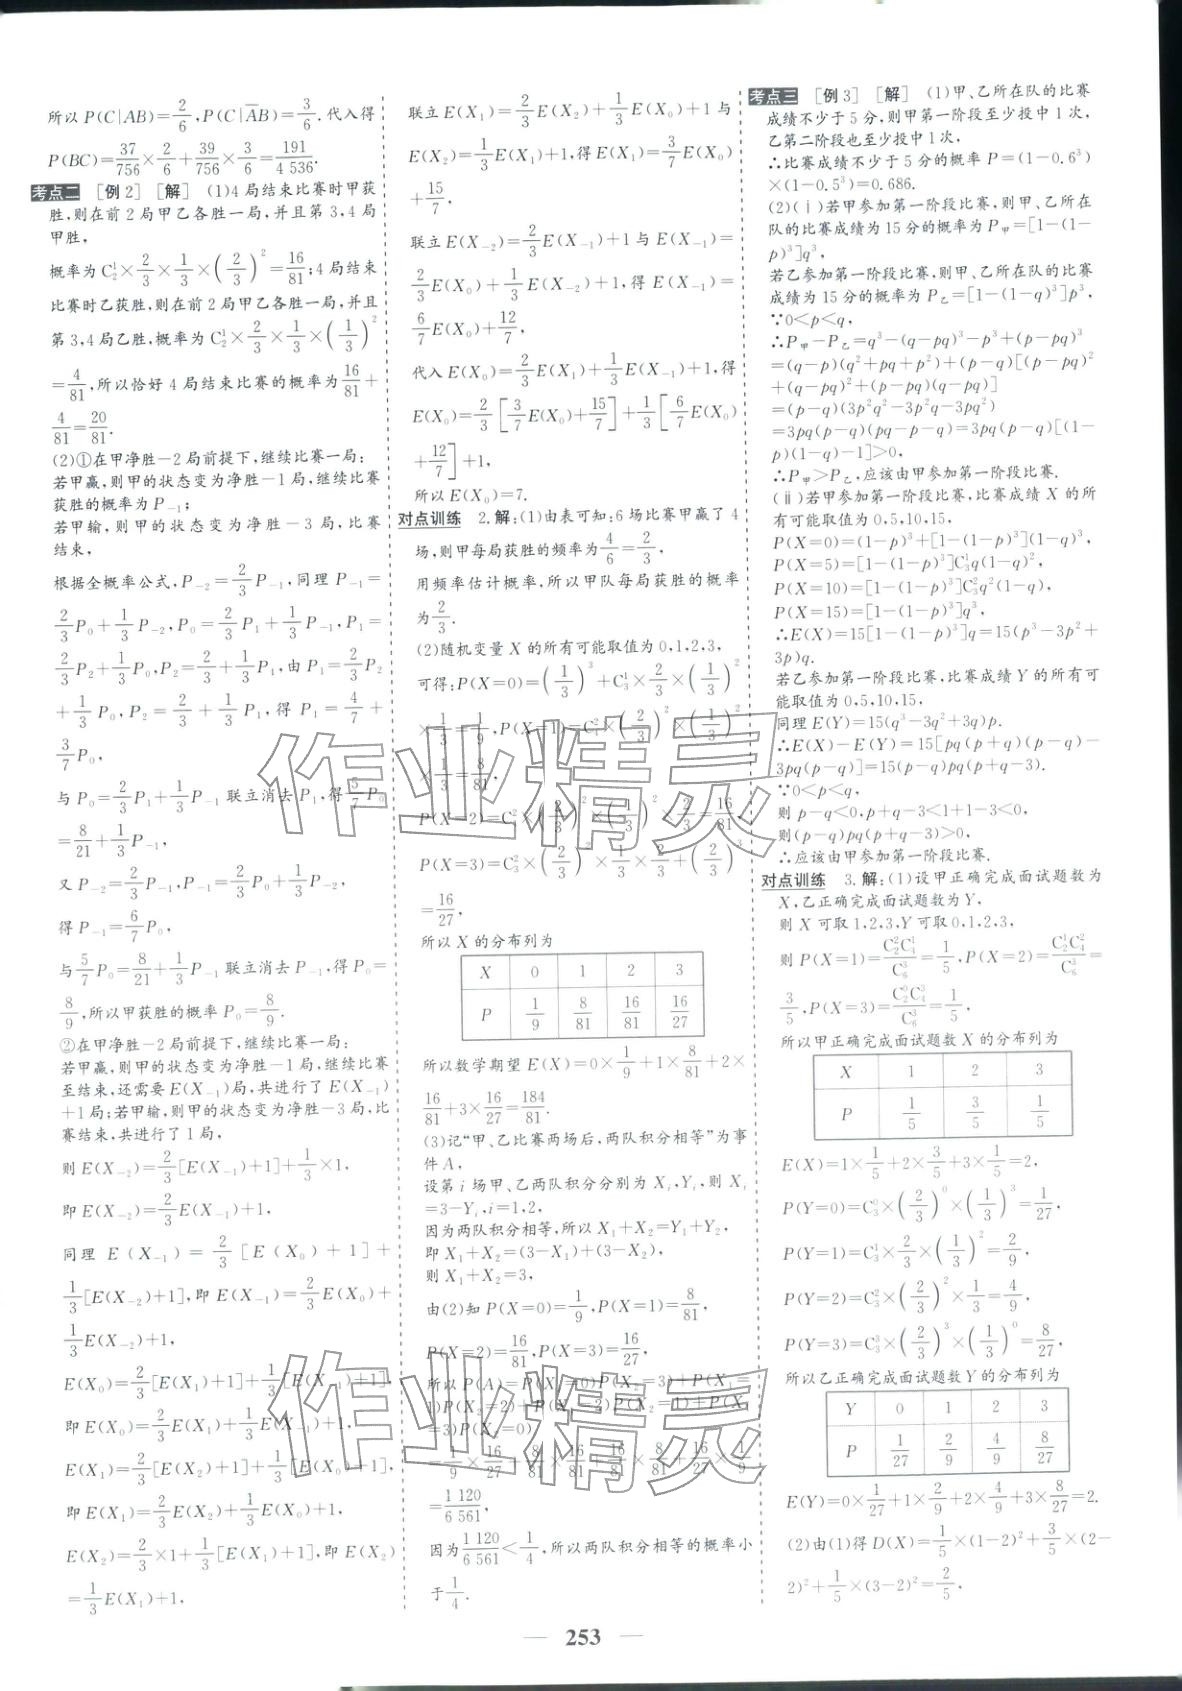 所以 P(C|AB)=2/6,P(C|A̅B)=3/6.代入得
P(BC)=37/756×2/6+39/756×3/6=191/4 536.
考点二 [例2] [解] (1)4局结束比赛时甲获
胜,则在前2局甲乙各胜一局,并且第3,4局
甲胜,
概率为C₂¹×2/3×1/3×(2/3)²=16/81;4局结束
比赛时乙获胜,则在前2局甲乙各胜一局,并且
第3,4局乙胜,概率为C₂¹×2/3×1/3×(1/3)²
=4/81,所以恰好4局结束比赛的概率为16/81+
4/81=20/81.
(2)①在甲净胜-2局前提下,继续比赛一局:
若甲赢,则甲的状态变为净胜-1局,继续比赛
获胜的概率为P₋₁;
若甲输,则甲的状态变为净胜-3局,比赛
结束,
根据全概率公式,P₋₂=2/3P₋₁,同理P₋₁=
2/3P₀+1/3P₋₂,P₀=2/3P₁+1/3P₋₁,P₁=
2/3P₂+1/3P₀,P₂=2/3+1/3P₁,由P₁=2/3P₂
+1/3P₀,P₂=2/3+1/3P₁,得P₁=4/7+
3/7P₀,
与P₀=2/3P₁+1/3P₋₁联立消去P₁,得5/7P₀
=8/21+1/3P₋₁,
又P₋₂=2/3P₋₁,P₋₁=2/3P₀+1/3P₋₂,
得P₋₁=6/7P₀,
与5/7P₀=8/21+1/3P₋₁联立消去P₋₁,得P₀=
8/9,所以甲获胜的概率P₀=8/9.
②在甲净胜-2局前提下,继续比赛一局:
若甲赢,则甲的状态变为净胜-1局,继续比赛
至结束,还需要E(X₋₁)局,共进行了E(X₋₁)
+1局;若甲输,则甲的状态变为净胜-3局,比
赛结束,共进行了1局,
则E(X₋₂)=2/3[E(X₋₁)+1]+1/3×1,
即E(X₋₂)=2/3E(X₋₁)+1,
同理 E(X₋₁)=2/3[E(X₀)+1]+
1/3[E(X₋₂)+1],即E(X₋₁)=2/3E(X₀)+
1/3E(X₋₂)+1,
E(X₀)=2/3[E(X₁)+1]+1/3[E(X₋₁)+1],
即E(X₀)=2/3E(X₁)+1/3E(X₋₁)+1,
E(X₁)=2/3[E(X₂)+1]+1/3[E(X₀)+1],
即E(X₁)=2/3E(X₂)+1/3E(X₀)+1,
E(X₂)=2/3×1+1/3[E(X₁)+1],即E(X₂)
=1/3E(X₁)+1,
联立E(X₁)=2/3E(X₂)+1/3E(X₀)+1与
E(X₂)=1/3E(X₁)+1,得E(X₁)=3/7E(X₀)
+15/7,
联立E(X₋₂)=2/3E(X₋₁)+1与E(X₋₁)=
2/3E(X₀)+1/3E(X₋₂)+1,得E(X₋₁)=
6/7E(X₀)+12/7,
代入E(X₀)=2/3E(X₁)+1/3E(X₋₁)+1,得
E(X₀)=2/3[3/7E(X₀)+15/7]+1/3[6/7E(X₀)
+12/7]+1,
所以E(X₀)=7.
对点训练 2.解:(1)由表可知:6场比赛甲赢了4
场,则甲每局获胜的频率为4/6=2/3,
用频率估计概率,所以甲队每局获胜的概率
为2/3.
(2)随机变量X的所有可能取值为0,1,2,3,
可得:P(X=0)=(1/3)³+C₃¹×2/3×(1/3)²
×1/3=1/9,P(X=1)=C₄²×(2/3)²×(1/3)²
×1/3=8/81,
P(X=2)=C₄²×(2/3)²×(1/3)²×2/3=16/81,
P(X=3)=C₃²×(2/3)²×1/3×2/3+(2/3)³
=16/27,
所以X的分布列为
X 0 1 2 3
P 1/9 8/81 16/81 16/27
所以数学期望E(X)=0×1/9+1×8/81+2×
16/81+3×16/27=184/81.
(3)记“甲、乙比赛两场后,两队积分相等”为事
件A,
设第i场甲、乙两队积分分别为Xᵢ,Yᵢ,则Xᵢ
=3-Yᵢ,i=1,2,
因为两队积分相等,所以X₁+X₂=Y₁+Y₂,
即X₁+X₂=(3-X₁)+(3-X₂),
则X₁+X₂=3,
由(2)知P(X=0)=1/9,P(X=1)=8/81,
P(X=2)=16/81,P(X=3)=16/27,
所以P(A)=P(X₁=0)P(X₂=3)+P(X₁=
1)P(X₂=2)+P(X₁=2)P(X₂=1)+P(X₁
=3)P(X₂=0)
=1/9×16/27+8/81×16/81+16/81×8/81+16/27×1/9
=1 120/6 561,
因为1 120/6 561<1/4,所以两队积分相等的概率小
于1/4.
考点三 [例3] [解] (1)甲、乙所在队的比赛
成绩不少于5分,则甲第一阶段至少投中1次,
乙第二阶段也至少投中1次,
∴比赛成绩不少于5分的概率P=(1-0.6³)
×(1-0.5³)=0.686.
(2)(ⅰ)若甲参加第一阶段比赛,则甲、乙所在
队的比赛成绩为15分的概率为P甲=[1-(1-
p)³]q³,
若乙参加第一阶段比赛,则甲、乙所在队的比赛
成绩为15分的概率为P乙=[1-(1-q)³]p³,
∵0<p<q,
∴P甲-P乙=q³-(q-pq)³-p³+(p-pq)³
=(q-p)(q²+pq+p²)+(p-q)[(p-pq)²
+(q-pq)²+(p-pq)(q-pq)]
=(p-q)(3p²q²-3p²q-3pq²)
=3pq(p-q)(pq-p-q)=3pq(p-q)[(1-
p)(1-q)-1]>0,
∴P甲>P乙,应该由甲参加第一阶段比赛.
(ⅱ)若甲参加第一阶段比赛,比赛成绩X的所
有可能取值为0,5,10,15,
P(X=0)=(1-p)³+[1-(1-p)³](1-q)³,
P(X=5)=[1-(1-p)³]C₃¹q(1-q)²,
P(X=10)=[1-(1-p)³]C₃²q²(1-q),
P(X=15)=[1-(1-p)³]q³,
∴E(X)=15[1-(1-p)³]q=15(p³-3p²+
3p)q.
若乙参加第一阶段比赛,比赛成绩Y的所有可
能取值为0,5,10,15,
同理E(Y)=15(q³-3q²+3q)p.
∴E(X)-E(Y)=15[pq(p+q)(p-q)-
3pq(p-q)]=15(p-q)pq(p+q-3).
∵0<p<q,
则p-q<0,p+q-3<1+1-3<0,
则(p-q)pq(p+q-3)>0,
∴应该由甲参加第一阶段比赛.
对点训练 3.解:(1)设甲正确完成面试题数为
X,乙正确完成面试题数为Y,
则X可取1,2,3,Y可取0,1,2,3,
则P(X=1)=C₂²C₄¹/C₆³=1/5,P(X=2)=C₂¹C₄²/C₆³=
3/5,P(X=3)=C₂⁰C₄³/C₆³=1/5,
所以甲正确完成面试题数X的分布列为
X 1 2 3
P 1/5 3/5 1/5
E(X)=1×1/5+2×3/5+3×1/5=2,
P(Y=0)=C₃⁰×(2/3)⁰×(1/3)³=1/27,
P(Y=1)=C₃¹×2/3×(1/3)²=2/9,
P(Y=2)=C₃²×(2/3)²×1/3=4/9,
P(Y=3)=C₃³×(2/3)³×(1/3)⁰=8/27,
所以乙正确完成面试题数Y的分布列为
Y 0 1 2 3
P 1/27 2/9 4/9 8/27
E(Y)=0×1/27+1×2/9+2×4/9+3×8/27=2.
(2)由(1)得D(X)=1/5×(1-2)²+3/5×(2-
2)²+1/5×(3-2)²=2/5,
— 253 —
作业精灵
作业精灵